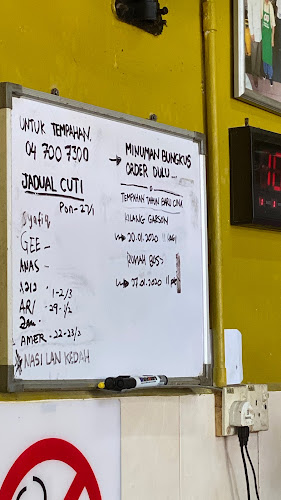 UNTUK TEMPAHAN.
04 700 7300
JADUAL CUTI
Pon - 27/1
Syafiq
GEE -
ANAS -
1-2/3
ARI - 29-1/2
AMER - 22-23/2
NASI LAN KEDAH
→ MINUMAN BUNGKUS
ORDER DULU ...
TEMPAHAN TAHUN BARU CINA
KILANG GABSON
20.01.2020 11 pagi
RUMAH BOS
27.01.2020 11 pagi